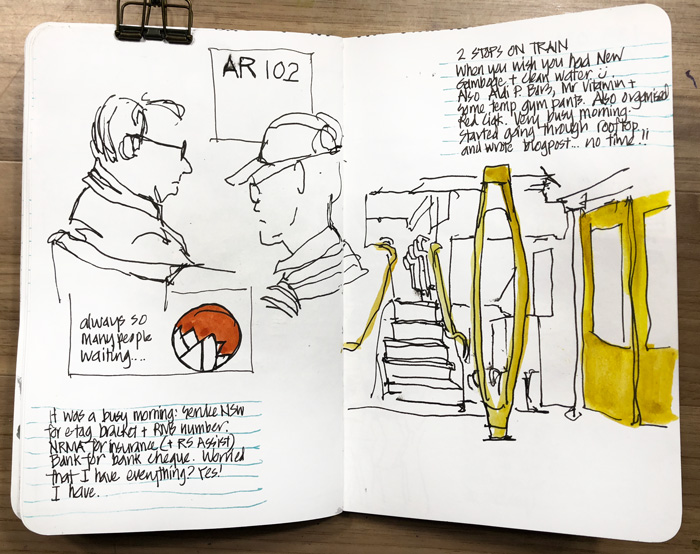 AR 102
always so
many people
waiting....
It was a busy morning: Service NSW
for etag bracket + RMS number.
NRMA for Insurance (+ RS Assist)
Bank for bank cheque. Worried
that I have everything? Yes!
I have.
2 STOPS ON TRAIN
When you wish you had New
Gamboge + clean water
Also Aldi P. Bars, Mr Vitamin +
some temp gym pants. Also organised
Red Cick. Very busy morning.
Started going through rooftop
and wrote blogpost... no time!!